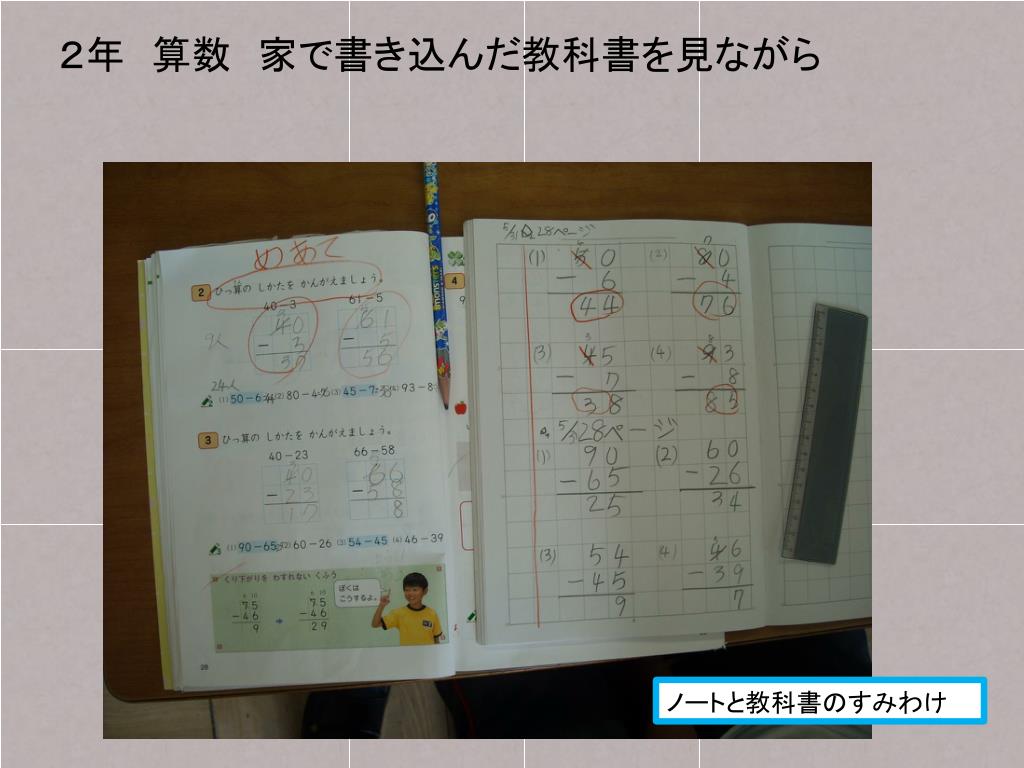 ２年　算数　家で書き込んだ教科書を見ながら
めあて
2 ひっ算の しかたを かんがえましょう。
40－3 61－5
40 61
－ 3 － 5
37 56
9人
24人
(1) 50－6 (2) 80－4 (3) 45－7 (4) 93－8
3 ひっ算の しかたを かんがえましょう。
40－23 66－58
40 66
－23 －58
17 8
(1) 90－65 (2) 60－26 (3) 54－45 (4) 46－39
くり下がりを わすれない くふう
ぼくは
こうするよ。
6 10 6 10
75 75
－46 －46
9 29
28
4
5/31 28ページ
(1) 50 (2) 80
－ 6 － 4
44 76
(3) 45 (4) 93
－ 7 － 8
38 85
5/31 28ページ
(1) 90 (2) 60
－65 －26
25 34
(3) 54 (4) 46
－45 －39
9 7
ノートと教科書のすみわけ